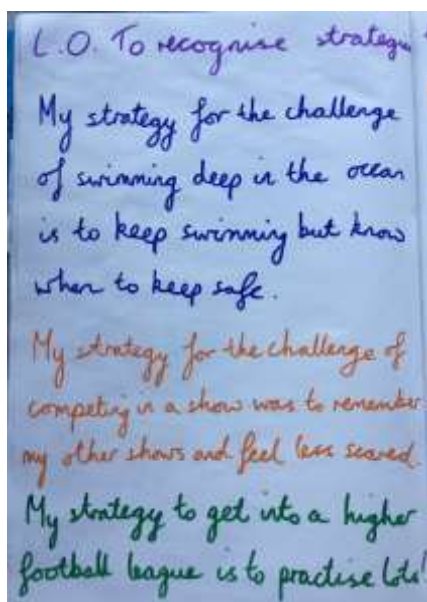 L.O. To recognise
My strategy for the challenge
of swimming deep in the ocean
is to keep swimming but know
when to keep safe.
My strategy for the challenge of
competing in a show was to remember
my other shows and feel less scared.
My strategy to get into a higher
football league is to practise lots!